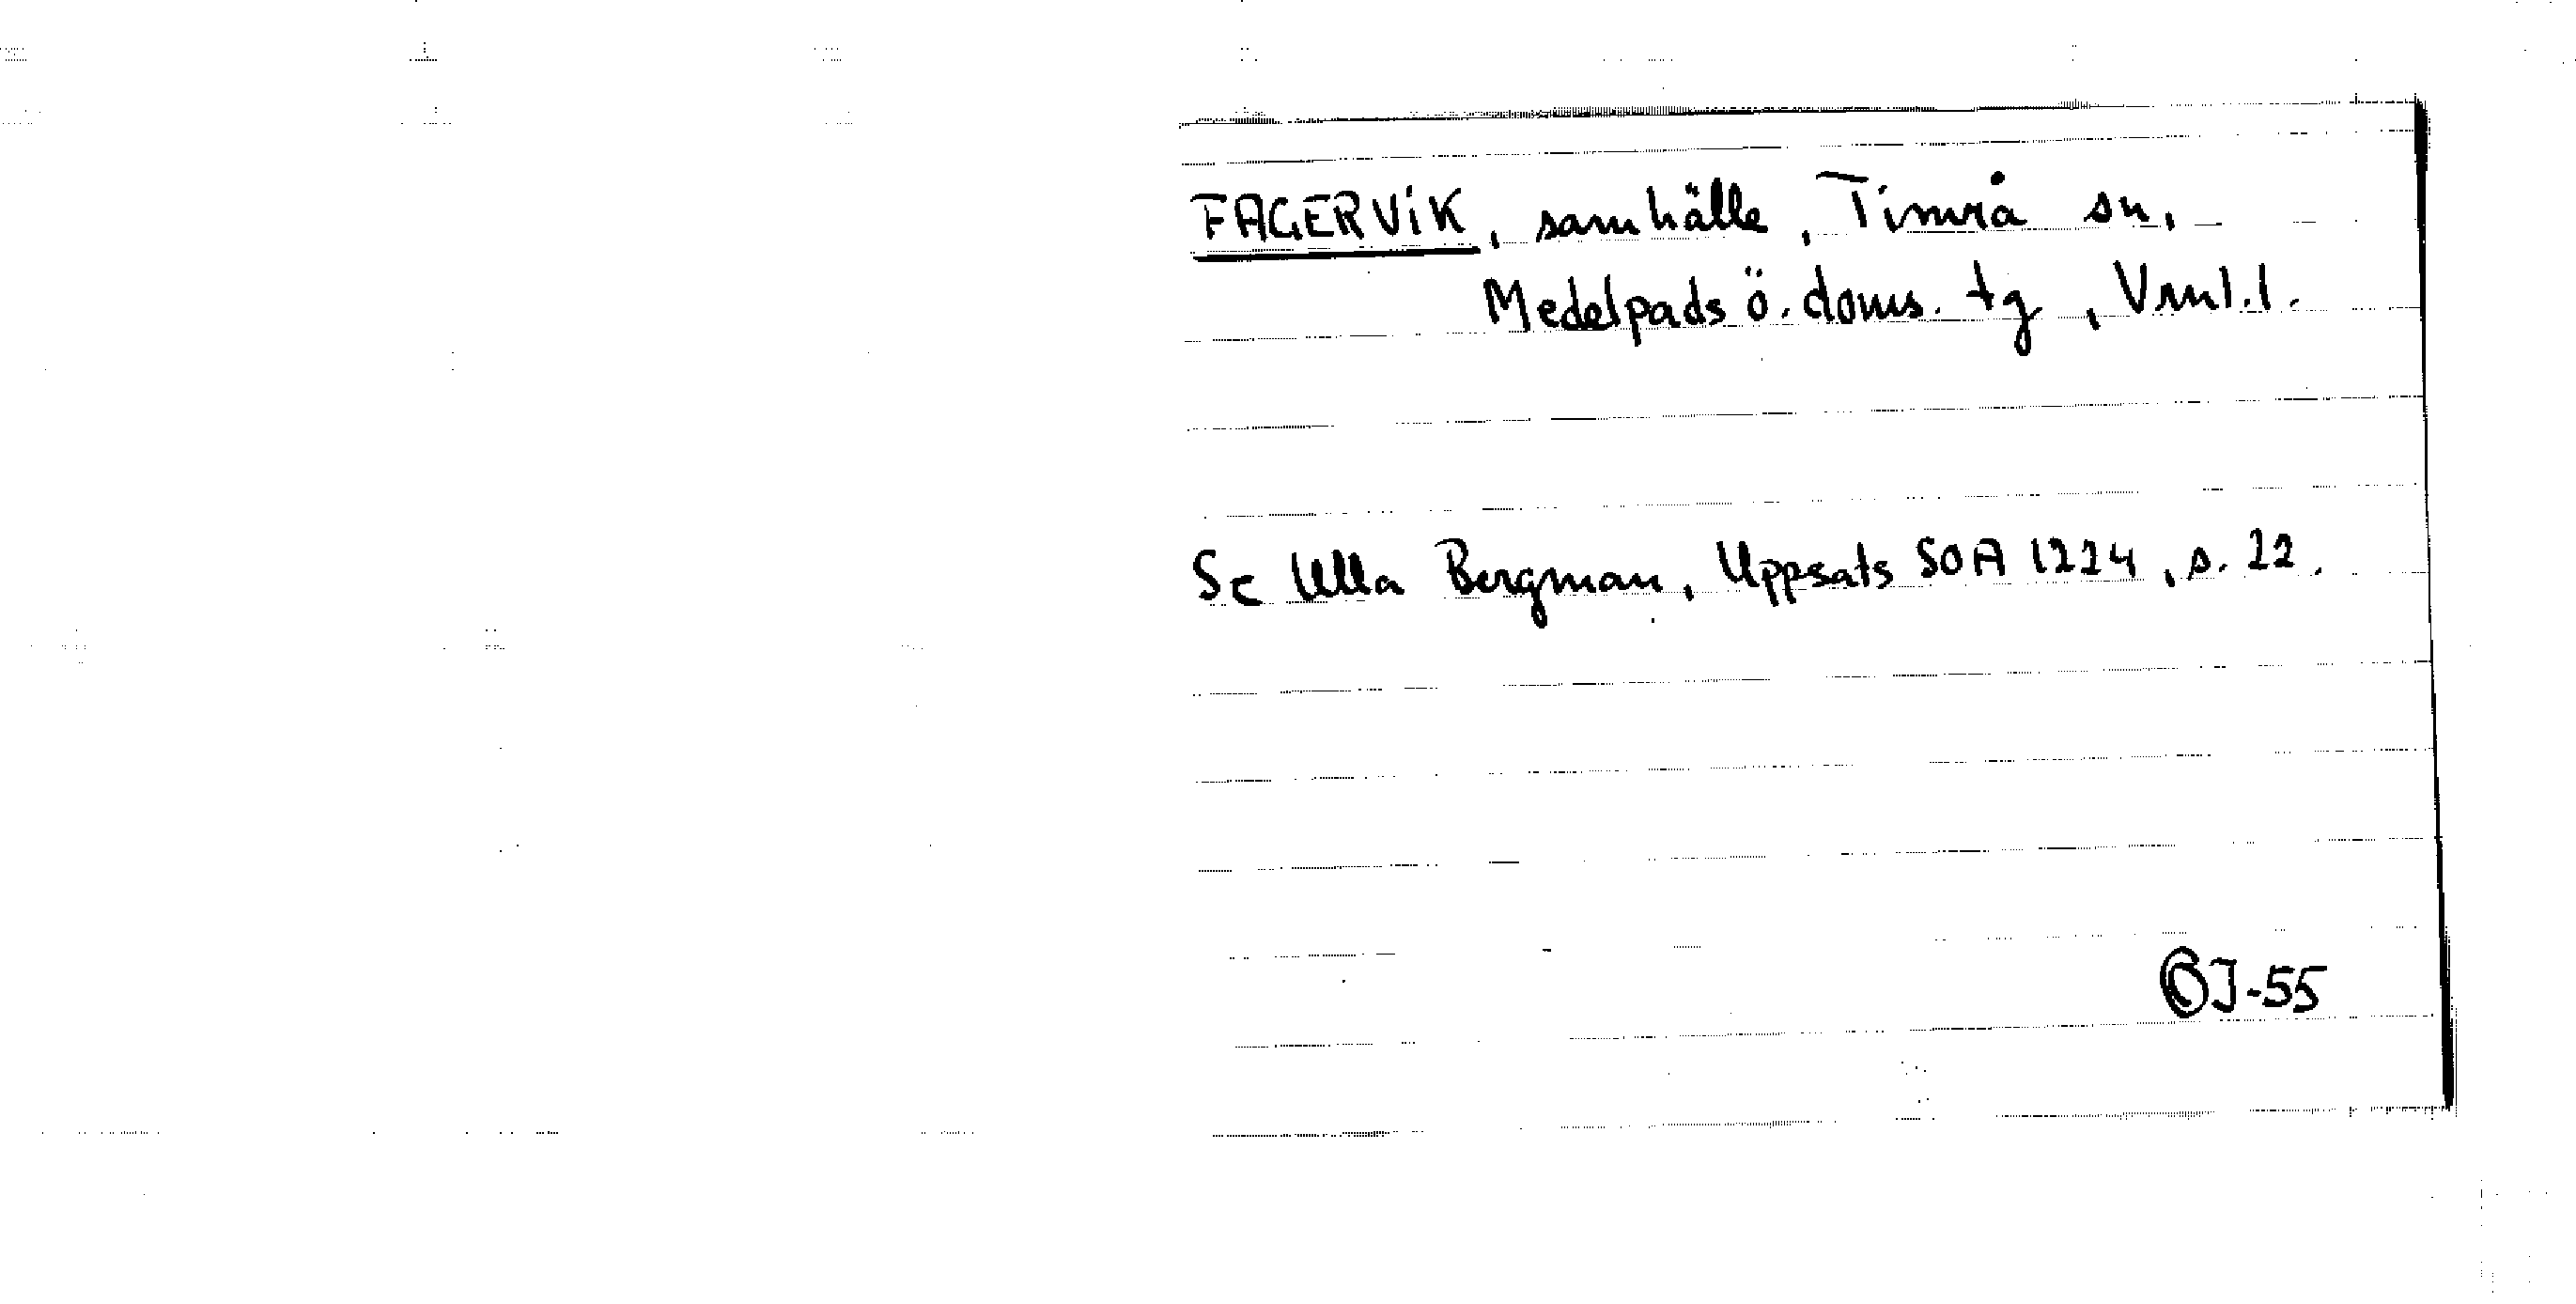 FAGERVIK, samhälle, Timrå sn,
Medelpads ö. doms. tg, Vrnl.l.
Se Ulla Bergman, Uppsats SOA 1224, s. 22.
BJ-55